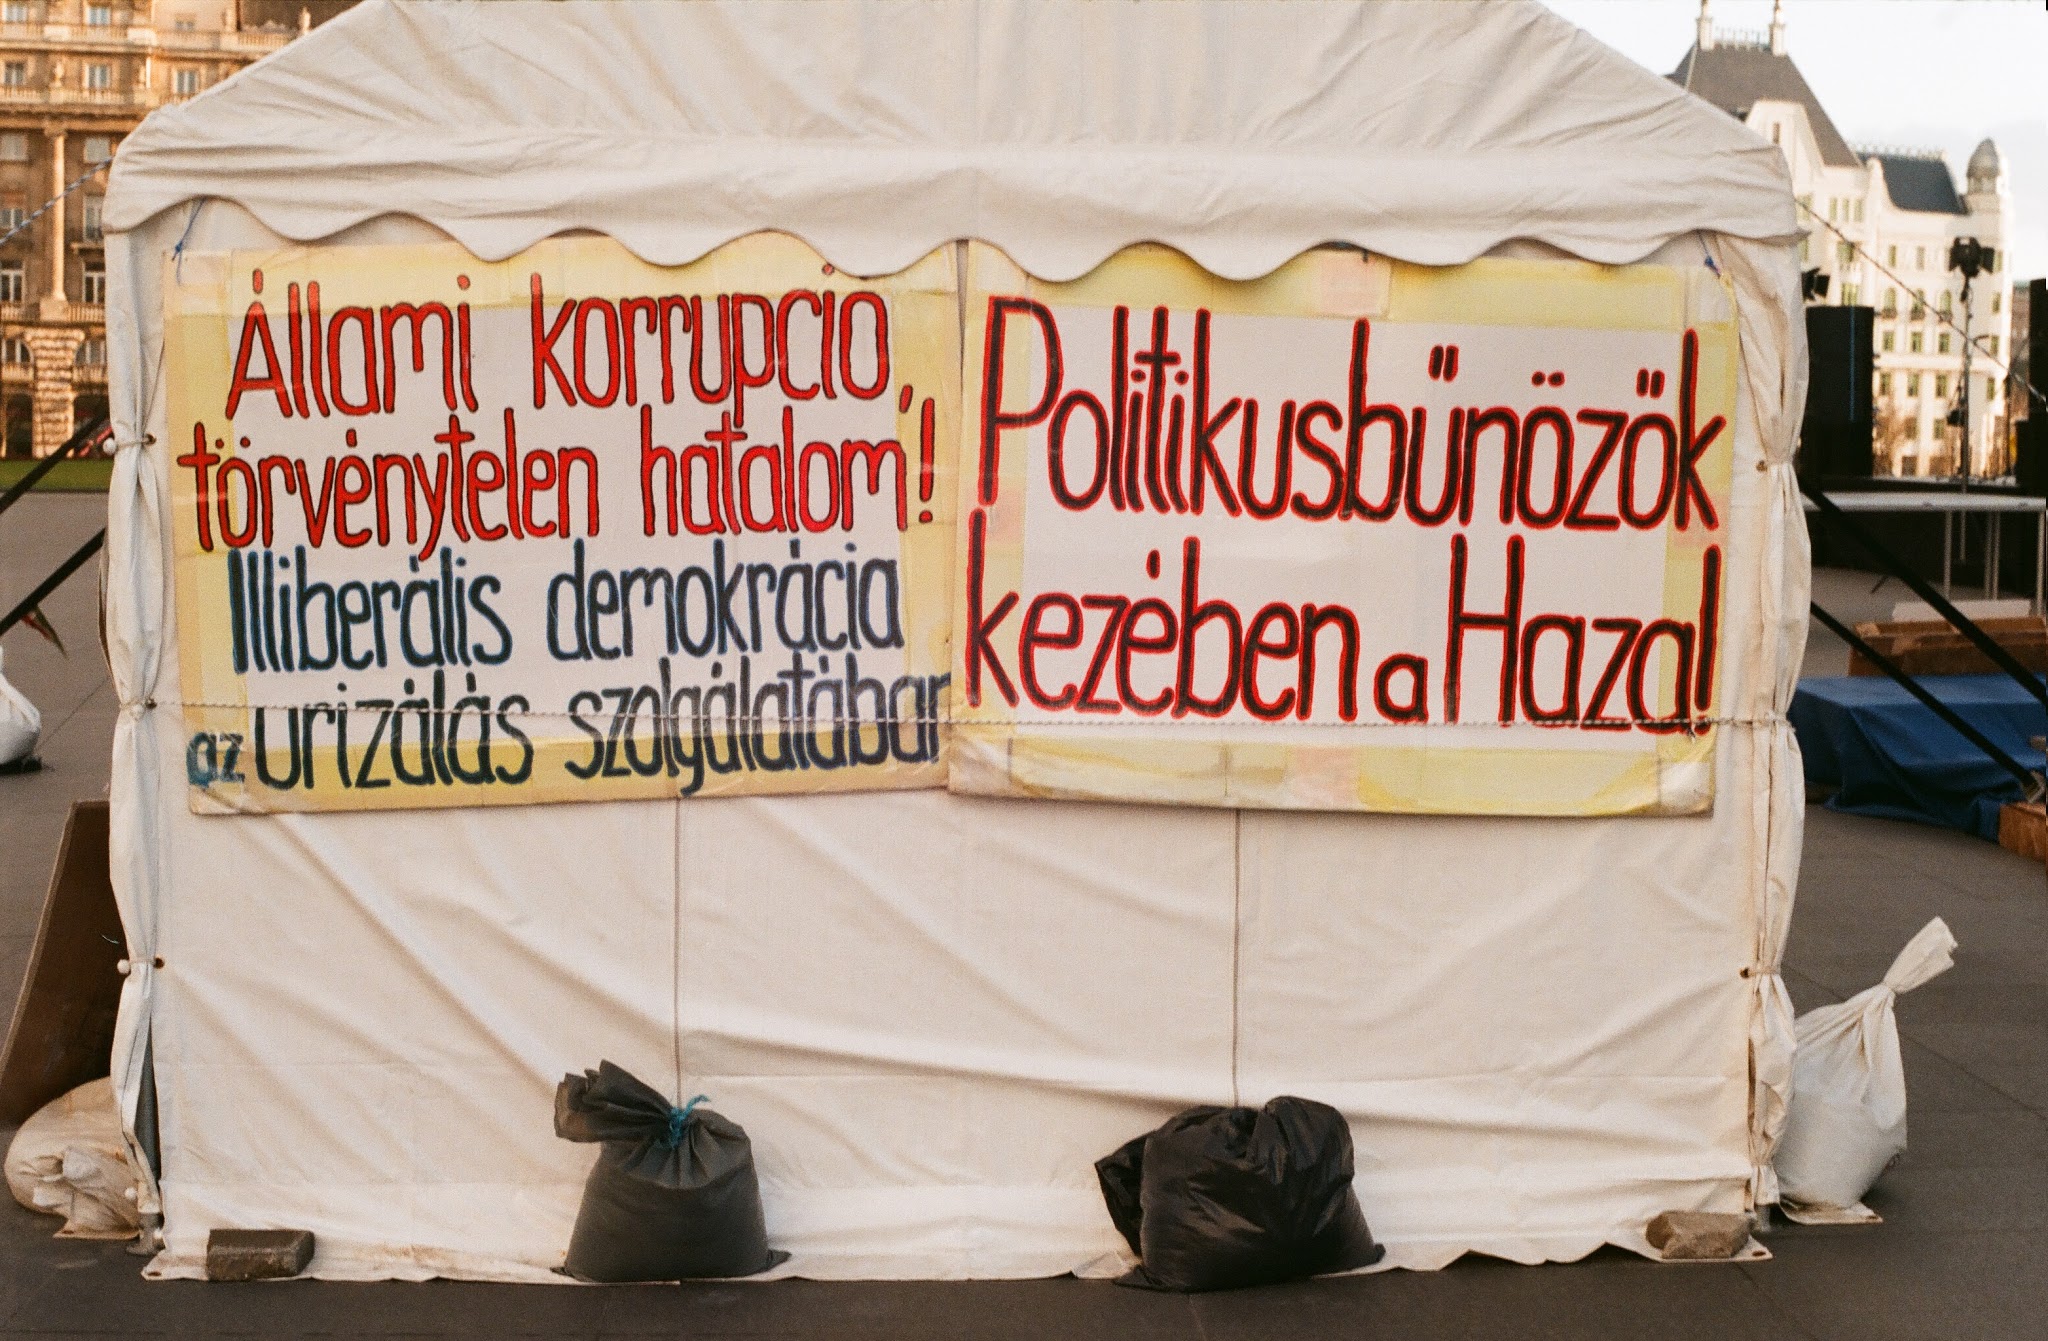 Állami korrupció,
törvénytelen hatalom!
Illiberális demokrácia
az Urizálás szolgálatában
Politikusbűnözők
kezében a Haza!